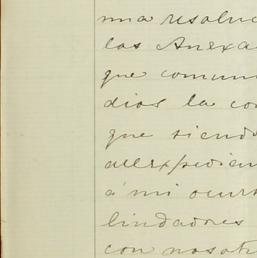 una resoluc
las Anexa
que comuni
dias la co
que siendo
al expedien
á mi ocurs
lindadores
con nosotr